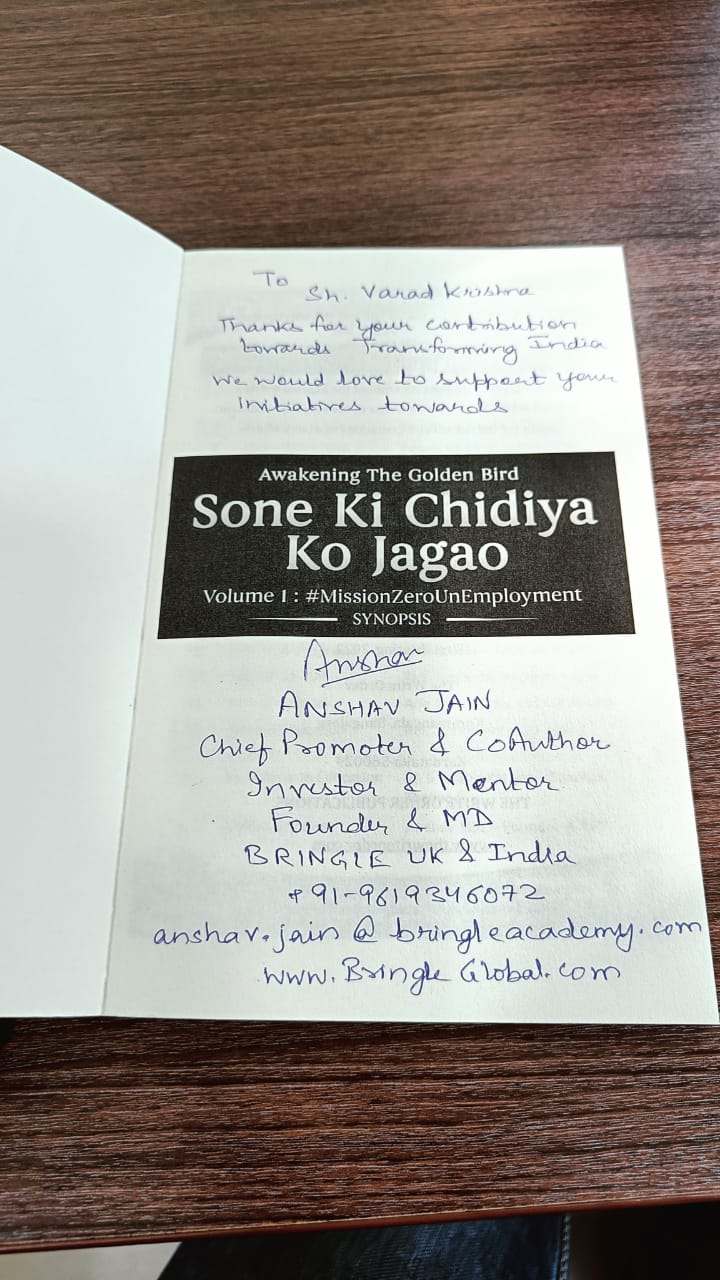 To
Sh. Varad Krishna
Thanks for your contribution
towards Transforming India
We would love to support your
initiatives towards
Awakening The Golden Bird
Sone Ki Chidiya
Ko Jagao
Volume 1 : #MissionZeroUnEmployment
SYNOPSIS
Anshav
ANSHAV JAIN
Chief Promoter & CoAuthor
Investor & Mentor
Founder & MD
BRINGLE UK & India
+91-9619346072
anshav.jain@bringleacademy.com
www.BringleGlobal.com